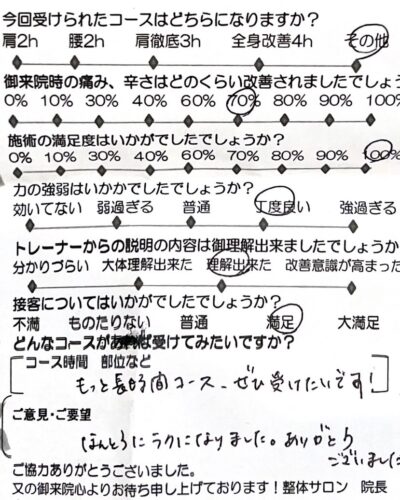 今回受けられたコースはどちらになりますか?
肩2h 腰2h 肩徹底3h 全身改善4h その他
御来院時の痛み、辛さはどのくらい改善されましたでしょう
0% 10% 30% 40% 60% 70% 80% 90% 100%
施術の満足度はいかがでしたでしょうか?
0% 10% 30% 40% 60% 70% 80% 90% 100%
力の強弱はいかかでしたでしょうか?
効いてない 弱過ぎる 普通 丁度良い 強過ぎる
トレーナーからの説明の内容は御理解出来ましたでしょうか
分かりづらい 大体理解出来た 理解出来た 改善意識が高まった
接客についてはいかがでしたでしょうか?
不満 ものたりない 普通 満足 大満足
どんなコースがあれば受けてみたいですか?
コース時間 部位など
もっと長時間コース、ぜひ受けたいです!
ご意見・ご要望
ほんとうにラクになりました。ありがとう
ございました
ご協力ありがとうございました。
又の御来院心よりお待ち申し上げております!整体サロン 院長